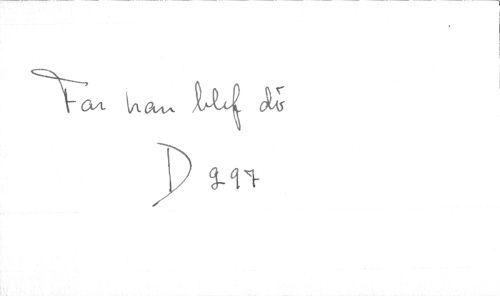 Far han blef dö
D 997